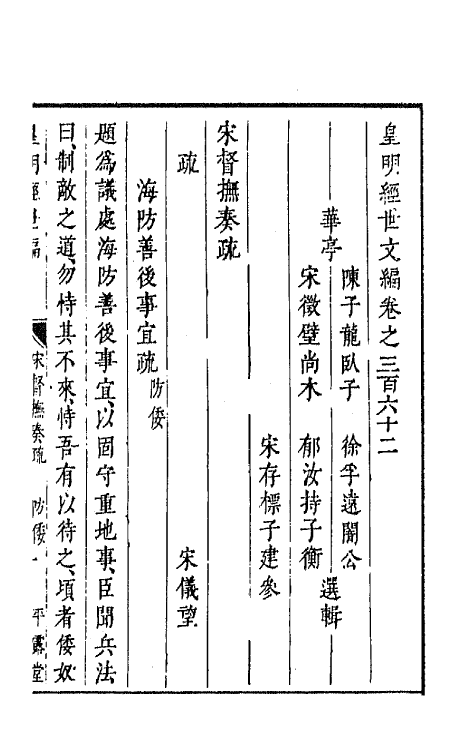 皇明經世文編卷之三百六十二
華亭
陳子龍臥子 徐孚遠闇公
宋徵璧尚木 郁汝持子衡
選輯
宋存標子建參
宋督撫奏疏
疏 宋儀望
海防善後事宜疏 防倭
題爲議處海防善後事宜、以固守重地事、臣聞兵法
曰、制敵之道、勿恃其不來、恃吾有以待之、頃者倭奴
皇明經世編 宋督撫奏疏 防倭 一 平露堂